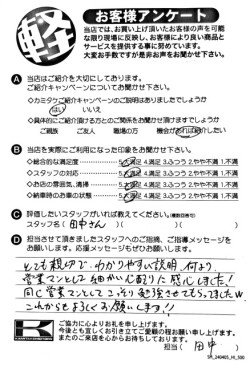 軽
お客様アンケート
当店では、お買い上げ頂いたお客様の声を可能
な限り現場に反映し、お客様により良い商品と
サービスを提供する事に努めています。
大変お手数ですが是非お声をお聞かせ下さい。
A 当店はご紹介を大切にしております。
ご紹介キャンペーンについてお聞かせ下さい。
◇カミタケご紹介キャンペーンのご説明はありましたでしょうか
はい いいえ
◇具体的にご紹介頂ける方とのご関係をお聞かせ頂けますでしょうか
ご親族 ご友人 職場の方 機会があれば紹介したい
B 当店を実際にご利用になった印象をお聞かせ下さい。
◇総合的な満足度 5.満足 4.満足 3.ふつう 2.やや不満 1.不満
◇スタッフの対応 5.満足 4.満足 3.ふつう 2.やや不満 1.不満
◇お店の雰囲気、清掃 5.満足 4.満足 3.ふつう 2.やや不満 1.不満
◇納車時のお車の状態 5.満足 4.満足 3.ふつう 2.やや不満 1.不満
C 評価したいスタッフがいれば教えてください。(複数回答可)
スタッフ名( 田中さん )( )
D 担当させて頂きましたスタッフへのご指摘、ご指導メッセージを
お願いします。応援メッセージもぜひお願いします。
とても親切で、わかりやすい説明、何より、
営業マンとして細かい心配りに感心しました!
同じ営業マンとしてこっそり勉強させてもらってましたw
これからもよろしくお願いします!!
ご協力に心よりお礼を申し上げます。
今後とも宜しくお引き立てご愛顧の程お願い申し上げます。
またのご来店を心からお待ちしております。
担当( 田中 )